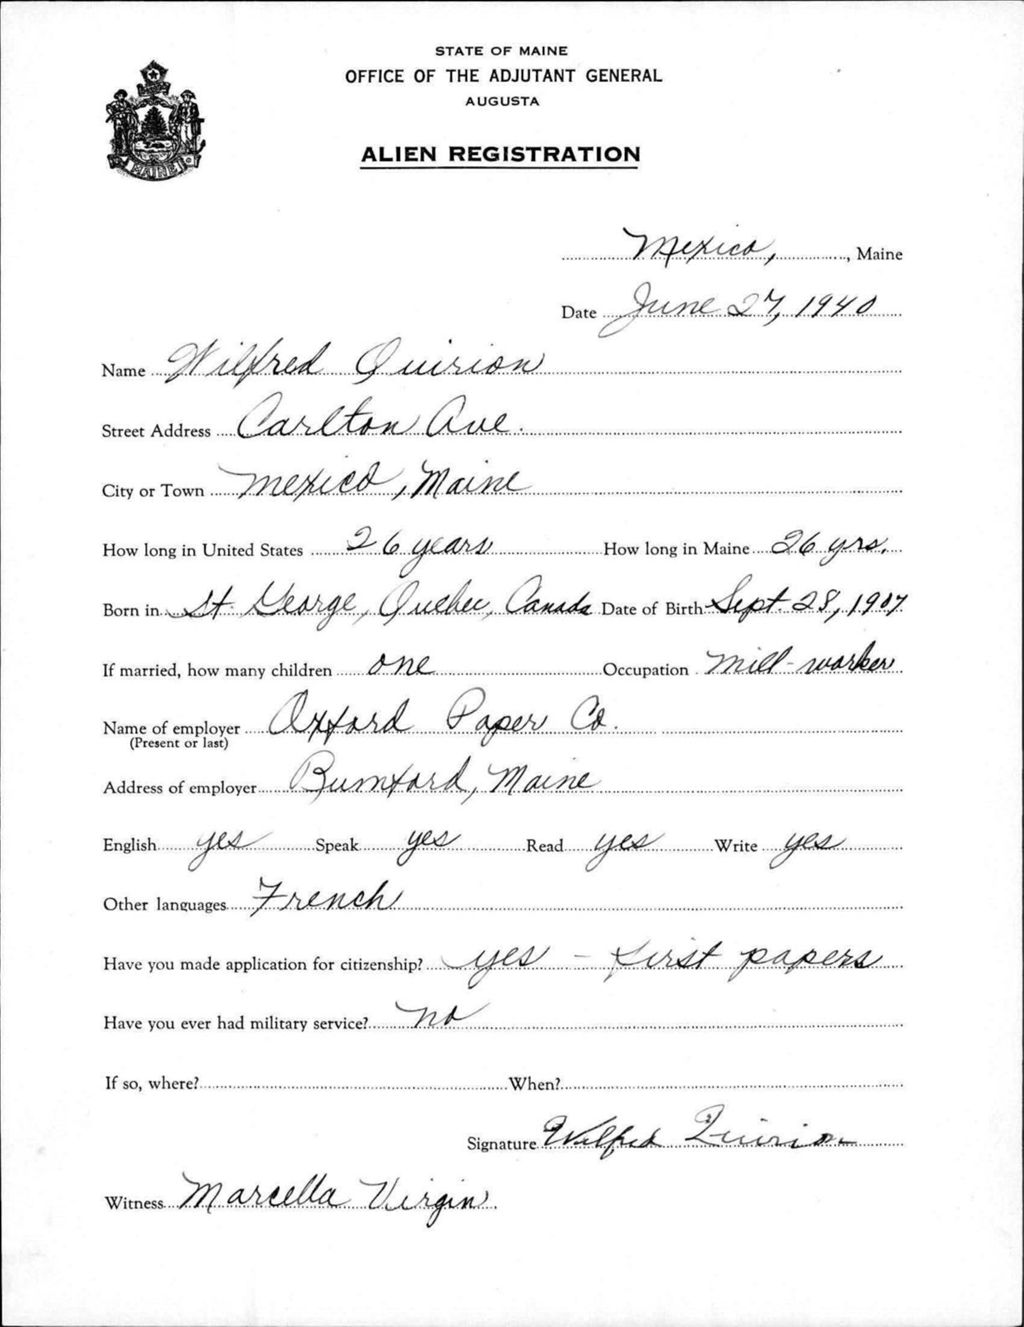 STATE OF MAINE
OFFICE OF THE ADJUTANT GENERAL
AUGUSTA
ALIEN REGISTRATION
MAINE
Mexico, , Maine
Date June 27, 1940
Name Wilfred Quirion
Street Address Carlton Ave.
City or Town Mexico, Maine
How long in United States 26 years How long in Maine 26 yrs.
Born in St. George, Quebec, Canada Date of Birth Sept. 28, 1907
If married, how many children one Occupation Mill-worker
Name of employer Oxford Paper Co.
(Present or last)
Address of employer Rumford, Maine
English yes Speak yes Read yes Write yes
Other languages French
Have you made application for citizenship? yes - first papers
Have you ever had military service? no
If so, where? When?
Signature Wilfred Quirion
Witness Marcella Virgin.